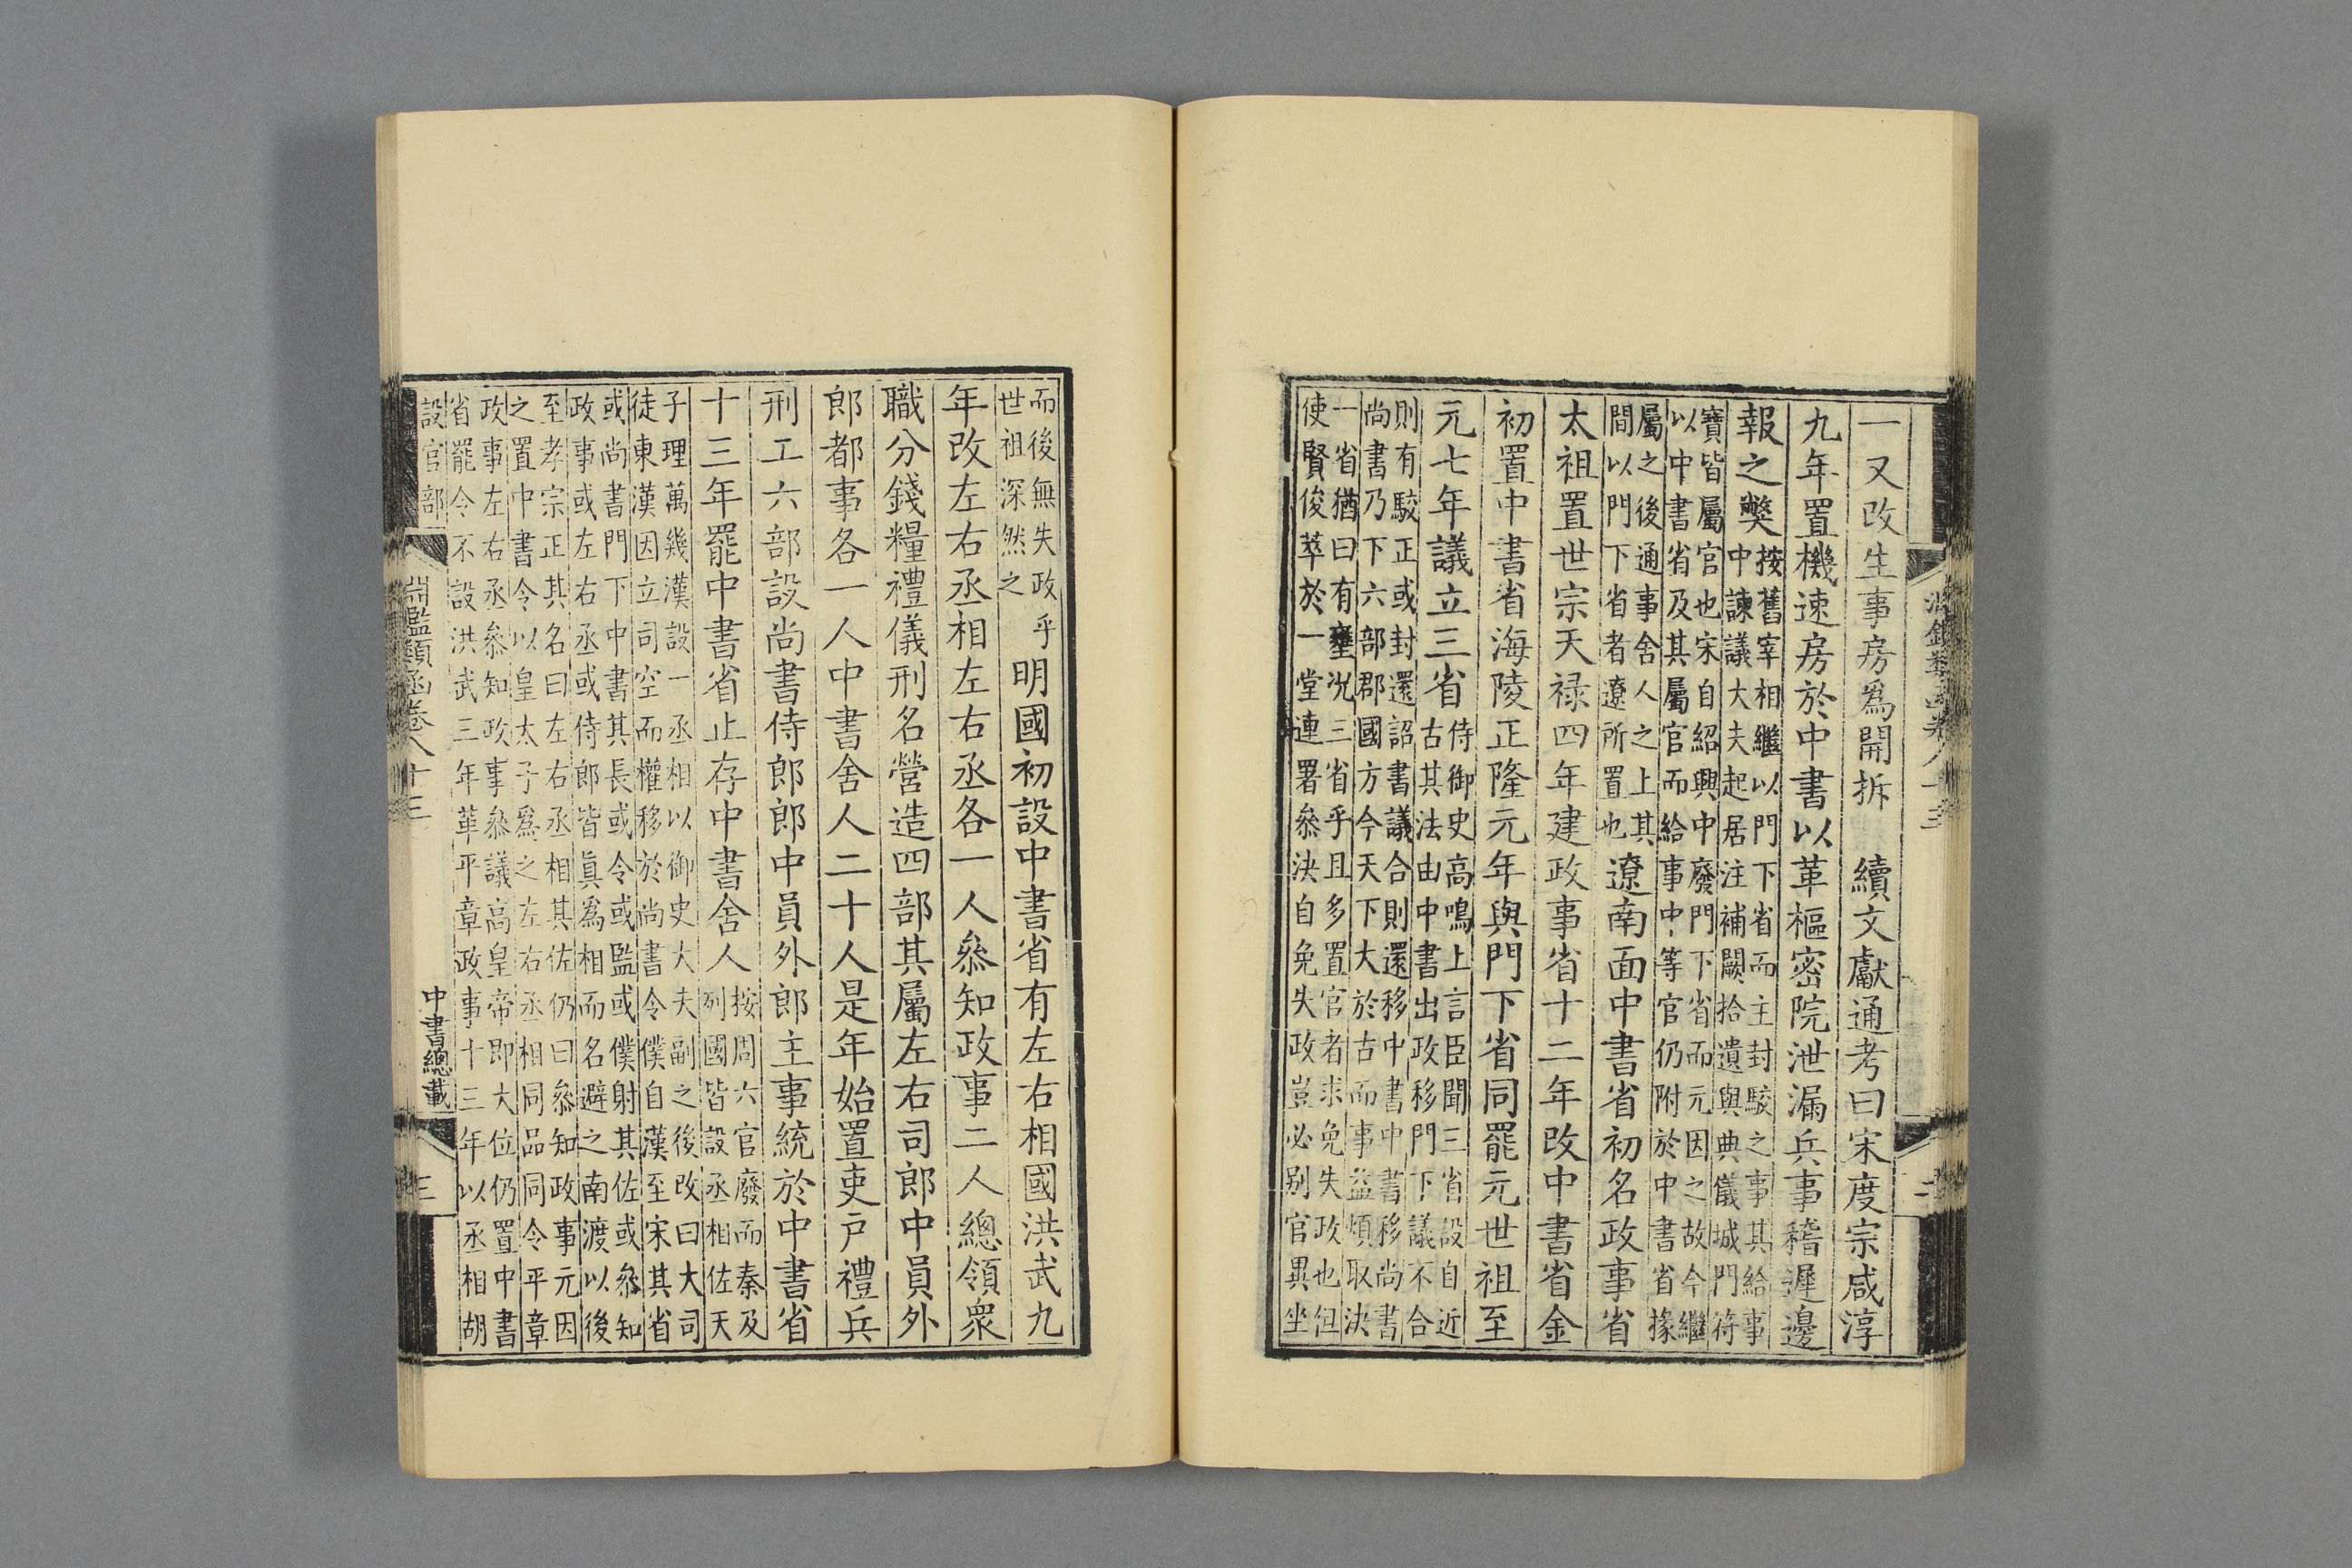 一又改生事房爲開拆　續文獻通考曰宋度宗咸淳
九年置機速房於中書以革樞密院泄漏兵事稽遲邊
報之獘
按舊宰相繼以門下省而主封駮之事其給事
中諫議大夫起居注補闕拾遺與典儀城門符
寶皆屬官也宋自紹興中廢門下省而元因之故今繼
以中書省及其屬官而給事中等官仍附於中書省掾
屬之後通事舍人之上其
間以門下省者遼所置也
遼南面中書省初名政事省
太祖置世宗天禄四年建政事省十二年改中書省金
初置中書省海陵正隆元年與門下省同罷元世祖至
元七年議立三省
侍御史高鳴上言臣聞三省設自近
古其法由中書出政移門下議不合
則有駮正或封還詔書議合則還移中書中書移尚書
尚書乃下六部郡國方今天下大於古而事益煩取決
一省猶曰有壅況三省乎且多置官者求免失政也但
使賢俊萃於一堂連署叅決自免失政豈必别官異坐
二
而後無失政乎
世祖深然之
明國初設中書省有左右相國洪武九
年改左右丞相左右丞各一人叅知政事二人總領衆
職分錢糧禮儀刑名營造四部其屬左右司郎中員外
郎都事各一人中書舍人二十人是年始置吏戸禮兵
刑工六部設尚書侍郎郎中員外郎主事統於中書省
十三年罷中書省止存中書舍人
按周六官廢而秦及
列國皆設丞相佐天
子理萬幾漢設一丞相以御史大夫副之後改曰大司
徒東漢因立司空而權移於尚書令僕自漢至宋其省
或尚書門下中書其長或令或監或僕射其佐或叅知
政事或左右丞或侍郎皆眞爲相而名避之南渡以後
至孝宗正其名曰左右丞相其佐仍曰叅知政事元因
之置中書令以皇太子爲之左右丞相同品同令平章
政事左右丞叅知政事叅議高皇帝即大位仍置中書
省罷令不設洪武三年革平章政事十三年以丞相胡
設官部
淵鑑類函卷八十三
中書總載
三